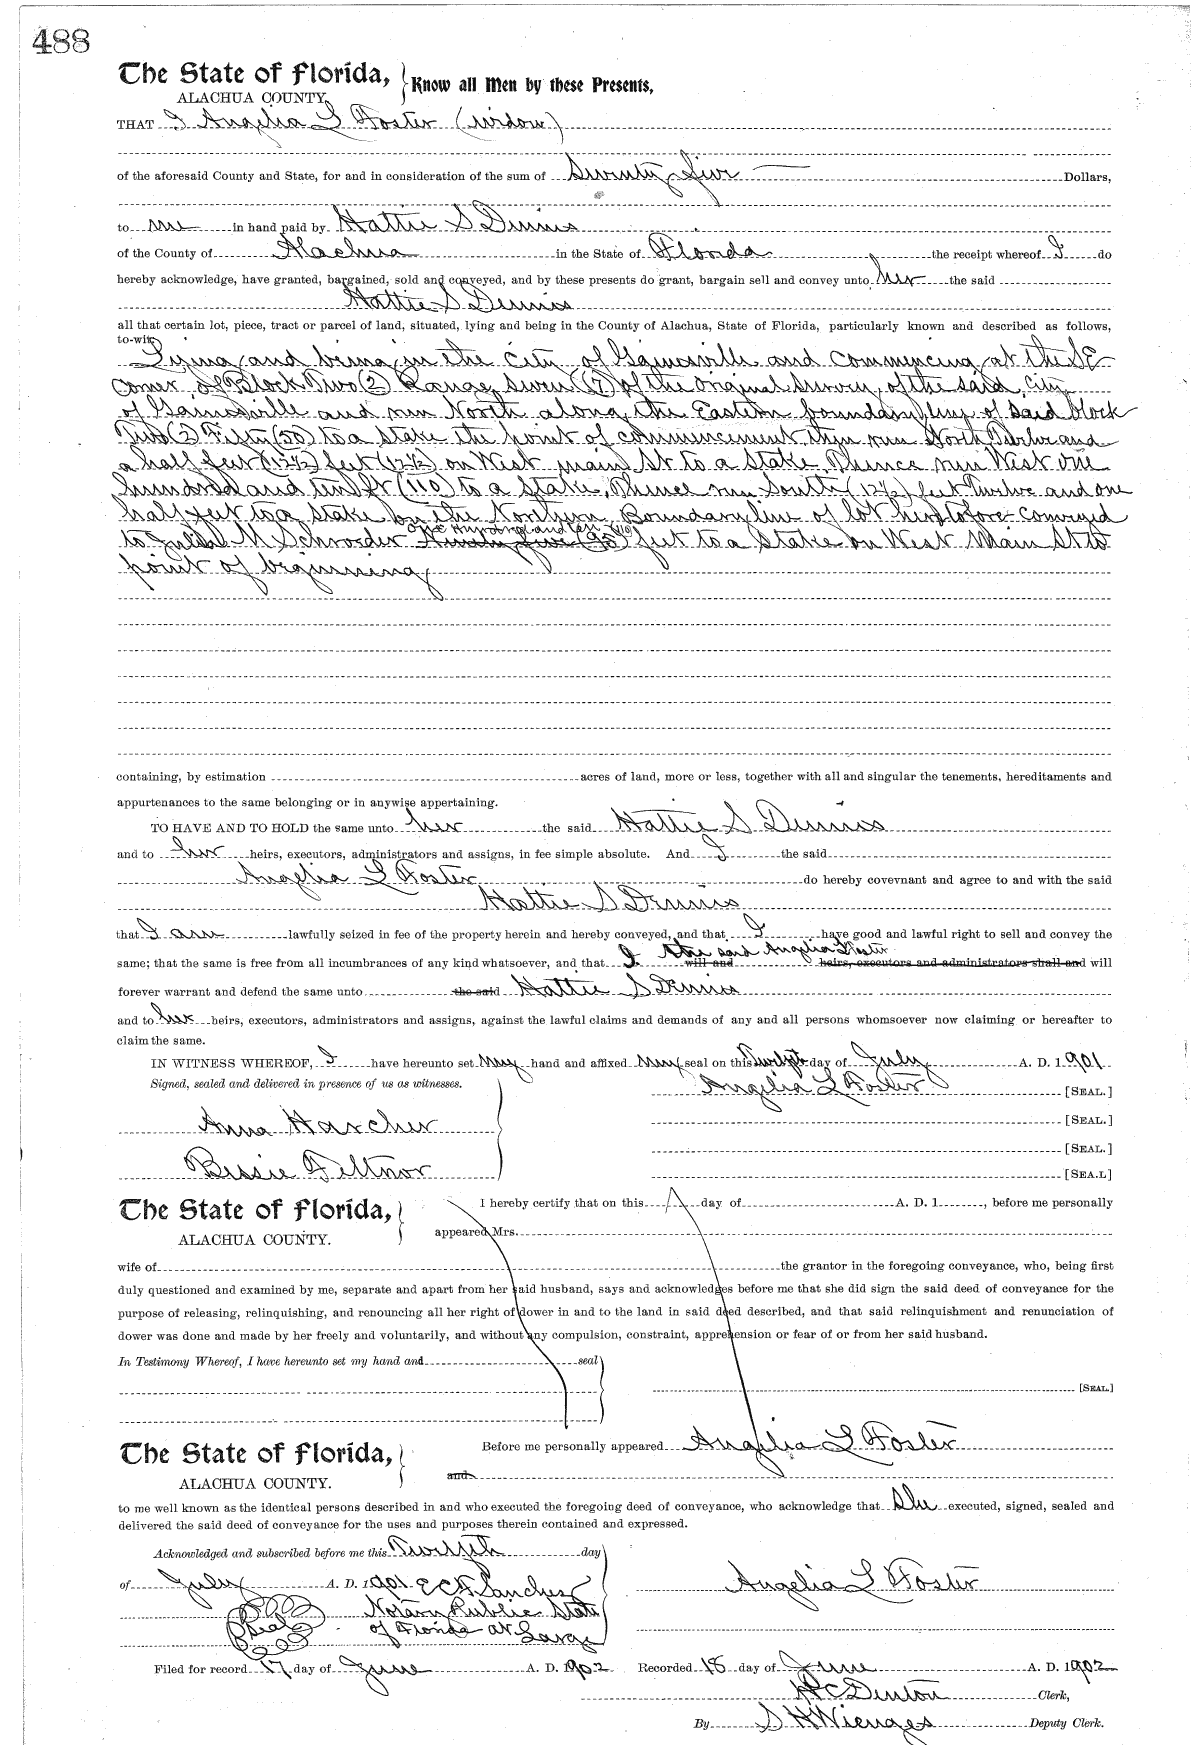 488
The State of Florida, } Know all Men by these Presents,
ALACHUA COUNTY.
THAT I Angelia L Foster (widow)
of the aforesaid County and State, for and in consideration of the sum of Seventy five Dollars,
to me in hand paid by Hattie S Dennis
of the County of Alachua in the State of Florida the receipt whereof I do
hereby acknowledge, have granted, bargained, sold and conveyed, and by these presents do grant, bargain sell and convey unto her the said
Hattie S Dennis
all that certain lot, piece, tract or parcel of land, situated, lying and being in the County of Alachua, State of Florida, particularly known and described as follows,
to-wit:
Lying and being in the City of Gainesville and commencing at the SE
corner of Block Two (2) Range Seven (7) of the original survey of the said City
of Gainesville and run North along the Eastern boundary line of said block
Two (2) Fifty (50) to a stake the point of commencement then run North Twelve and
a half feet (12½) feet (12½) on West main St to a stake, Thence run West one
hundred and ten ft (110) to a stake, Thence run South (12½) feet Twelve and one
half feet to a stake on the Northern Boundary line of lot heretofore conveyed
One Hundred and ten (110)
to Julia M Schroeder Ninety five (95) feet to a stake on West Main St to
point of beginning
containing, by estimation acres of land, more or less, together with all and singular the tenements, hereditaments and
appurtenances to the same belonging or in anywise appertaining.
TO HAVE AND TO HOLD the same unto her the said Hattie S Dennis
and to her heirs, executors, administrators and assigns, in fee simple absolute. And I the said
Angelia L Foster do hereby covevnant and agree to and with the said
Hattie S Dennis
that I am lawfully seized in fee of the property herein and hereby conveyed, and that I have good and lawful right to sell and convey the
same; that the same is free from all incumbrances of any kind whatsoever, and that I the said Angelia L Foster will and heirs, executors and administrators shall and will
forever warrant and defend the same unto the said Hattie S Dennis
and to her heirs, executors, administrators and assigns, against the lawful claims and demands of any and all persons whomsoever now claiming or hereafter to
claim the same.
IN WITNESS WHEREOF, I have hereunto set my hand and affixed my seal on this Twelfth day of July A. D. 1901
Signed, sealed and delivered in presence of us as witnesses.
Angelia L Foster [SEAL.]
[SEAL.]
Anna
[SEAL.]
Bessie Feltnor [SEA.L]
The State of Florida, } I hereby certify that on this day of A. D. 1 , before me personally
ALACHUA COUNTY. appeared Mrs.
wife of the grantor in the foregoing conveyance, who, being first
duly questioned and examined by me, separate and apart from her said husband, says and acknowledges before me that she did sign the said deed of conveyance for the
purpose of releasing, relinquishing, and renouncing all her right of dower in and to the land in said deed described, and that said relinquishment and renunciation of
dower was done and made by her freely and voluntarily, and without any compulsion, constraint, apprehension or fear of or from her said husband.
In Testimony Whereof, I have hereunto set my hand and seal
[SEAL.]
The State of Florida, } Before me personally appeared Angelia L Foster
ALACHUA COUNTY. and
to me well known as the identical persons described in and who executed the foregoing deed of conveyance, who acknowledge that She executed, signed, sealed and
delivered the said deed of conveyance for the uses and purposes therein contained and expressed.
Acknowledged and subscribed before me this Twelfth day
of July A. D. 1901 E C F Sanchez Angelia L Foster
Seal Notary Public State
of Florida at Large
Filed for record 17 day of June A. D. 1902 Recorded 18 day of June A. D. 1902
H C Denton Clerk,
By S H Wienges Deputy Clerk.